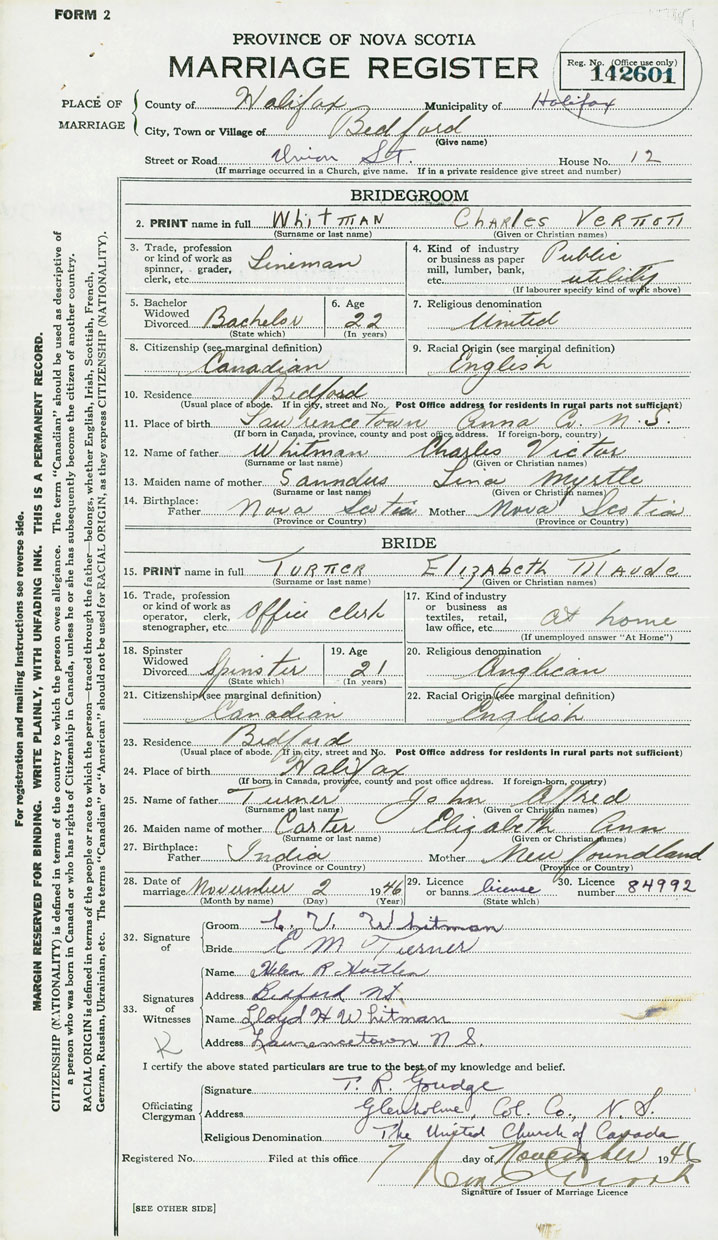 FORM 2
PROVINCE OF NOVA SCOTIA
MARRIAGE REGISTER
Reg. No. (Office use only)
142601
PLACE OF MARRIAGE
County of Halifax Municipality of Halifax
City, Town or Village of Bedford
(Give name)
Street or Road Union St. House No. 12
(If marriage occurred in a Church, give name. If in a private residence give street and number)
BRIDEGROOM
2. PRINT name in full Whitman Charles Vernon
(Surname or last name) (Given or Christian names)
3. Trade, profession or kind of work as spinner, grader, clerk, etc. Lineman
4. Kind of industry or business as paper mill, lumber, bank, etc. Public utility
(If labourer specify kind of work above)
5. Bachelor Widowed Divorced Bachelor
(State which)
6. Age 22
(In years)
7. Religious denomination United
8. Citizenship (see marginal definition) Canadian
9. Racial Origin (see marginal definition) English
10. Residence Bedford
(Usual place of abode. If in city, street and No. Post Office address for residents in rural parts not sufficient)
11. Place of birth Lawrencetown Anna Co. N.S.
(If born in Canada, province, county and post office address. If foreign-born, country)
12. Name of father Whitman Charles Victor
(Surname or last name) (Given or Christian names)
13. Maiden name of mother Saunders Lina Myrtle
(Surname or last name) (Given or Christian names)
14. Birthplace: Father Nova Scotia Mother Nova Scotia
(Province or Country) (Province or Country)
BRIDE
15. PRINT name in full Turner Elizabeth Maude
(Surname or last name) (Given or Christian names)
16. Trade, profession or kind of work as operator, clerk, stenographer, etc. Office clerk
17. Kind of industry or business as textiles, retail, law office, etc. at home
(If unemployed answer "At Home")
18. Spinster Widowed Divorced Spinster
(State which)
19. Age 21
(In years)
20. Religious denomination Anglican
21. Citizenship (see marginal definition) Canadian
22. Racial Origin (see marginal definition) English
23. Residence Bedford
(Usual place of abode. If in city, street and No. Post Office address for residents in rural parts not sufficient)
24. Place of birth Halifax
(If born in Canada, province, county and post office address. If foreign-born, country)
25. Name of father Turner John Alfred
(Surname or last name) (Given or Christian names)
26. Maiden name of mother Carter Elizabeth Ann
(Surname or last name) (Given or Christian names)
27. Birthplace: Father India Mother Newfoundland
(Province or Country) (Province or Country)
28. Date of marriage November 2 1946
(Month by name) (Day) (Year)
29. Licence or banns license
(State which)
30. Licence number 84992
32. Signature of
Groom C. V. Whitman
Bride E M Turner
33. Signatures of Witnesses
Name Helen R
Address Bedford NS.
Name Lloyd H Whitman
Address Lawrencetown N S.
I certify the above stated particulars are true to the best of my knowledge and belief.
Officiating Clergyman
Signature T. R. Goudge
Address Glenholme, Col. Co., N. S.
Religious Denomination The United Church of Canada
Registered No. Filed at this office 7 day of November 1946
Signature of Issuer of Marriage Licence
[SEE OTHER SIDE]
For registration and mailing Instructions see reverse side.
MARGIN RESERVED FOR BINDING. WRITE PLAINLY, WITH UNFADING INK. THIS IS A PERMANENT RECORD.
CITIZENSHIP (NATIONALITY) is defined in terms of the country to which the person owes allegiance. The term "Canadian" should be used as descriptive of
a person who was born in Canada or who has rights of Citizenship in Canada, unless he or she has subsequently become the citizen of another country.
RACIAL ORIGIN is defined in terms of the people or race to which the person—traced through the father—belongs, whether English, Irish, Scottish, French,
German, Russian, Ukrainian, etc. The terms "Canadian" or "American" should not be used for RACIAL ORIGIN, as they express CITIZENSHIP (NATIONALITY).